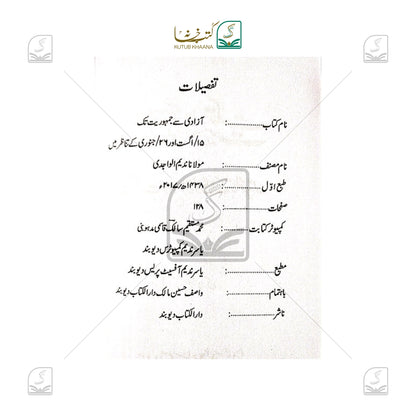 کتب خانہ
KUTUB KHAANA
تفصیلات
نام کتاب ..........: آزادی سے جمہوریت تک
۱۵/اگست اور ۲۶/جنوری کے تناظر میں
نام مصنف ..........: مولانا ندیم الواجدی
طبع اوّل ..........: ۱۴۳۸ھ/۲۰۱۷ء
صفحات ..........: ۱۲۸
کمپیوٹر کتابت ..........: محمد مستقیم سالک قاسمی مدہوبنی
یاسر ندیم کمپیوٹرس دیوبند
مطبع ..........: یاسر ندیم آفسیٹ پریس دیوبند
باہتمام ..........: واصف حسین مالک دارالکتاب دیوبند
ناشر ..........: دارالکتاب دیوبند